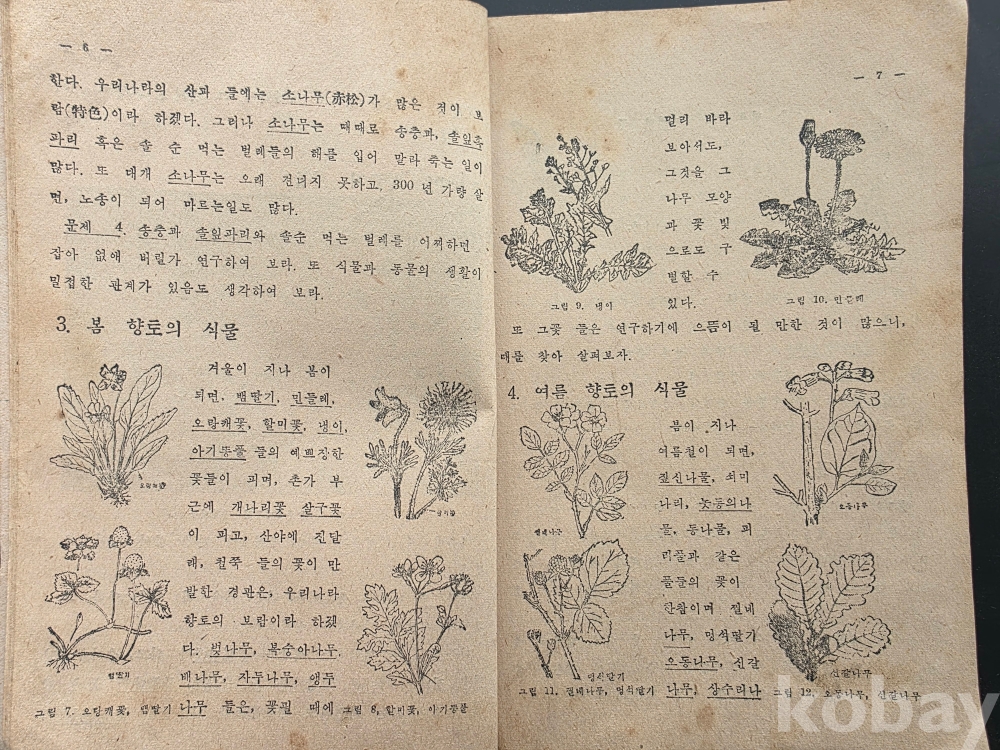 — 6 —
한다. 우리나라의 산과 들에는 소나무(赤松)가 많은 것이 보
람(特色)이라 하겠다. 그러나 소나무는 때때로 송충과, 솔잎혹
파리 혹은 솔 순 먹는 벌레들의 해를 입어 말라 죽는 일이
많다. 또 대개 소나무는 오래 견디지 못하고, 300 년 가량 살
면, 노송이 되어 마르는일도 많다.
문제 4. 송충과 솔잎파리와 솔순 먹는 벌레를 어찌하면
잡아 없애 버릴가 연구하여 보라. 또 식물과 동물의 생활이
밀접한 관계가 있음도 생각하여 보라.
3. 봄 향토의 식물
겨울이 지나 봄이
되면, 뱀딸기, 민들레,
오랑캐꽃, 할미꽃, 냉이,
아기똥풀 들의 예쁘장한
꽃들이 피며, 촌가 부
근에 개나리꽃 살구꽃
이 피고, 산야에 진달
래, 철쭉 들의 꽃이 만
발한 경관은, 우리나라
향토의 보람이라 하겠
다. 벚나무, 복숭아나무,
배나무, 자두나무, 앵두
나무 들은, 꽃필 때에
오랑캐꽃
뱀딸기
할미꽃
그림 7. 오랑캐꽃, 뱀딸기
그림 8, 할미꽃, 아기똥풀
— 7 —
멀리 바라
보아서도,
그것을 그
나무 모양
과 꽃 빛
으로도 구
별할 수
있다.
그림 9. 냉이
그림 10. 민들레
또 그꽃 들은 연구하기에 으뜸이 될 만한 것이 많으니,
때를 찾아 살펴보자.
4. 여름 향토의 식물
봄이 지나
여름철이 되면,
짚신나물, 쇠미
나리, 놋동의나
물, 동나물, 피
리꿀과 같은
풀들의 꽃이
한참이며 찔네
나무, 멍석딸기
오동나무, 신갈
나무, 상수리나
찔네나무
오동나무
멍석딸기
신갈나무
그림 11, 찔네나무, 멍석딸기
그림 12, 오동나무, 신갈나무
kobay